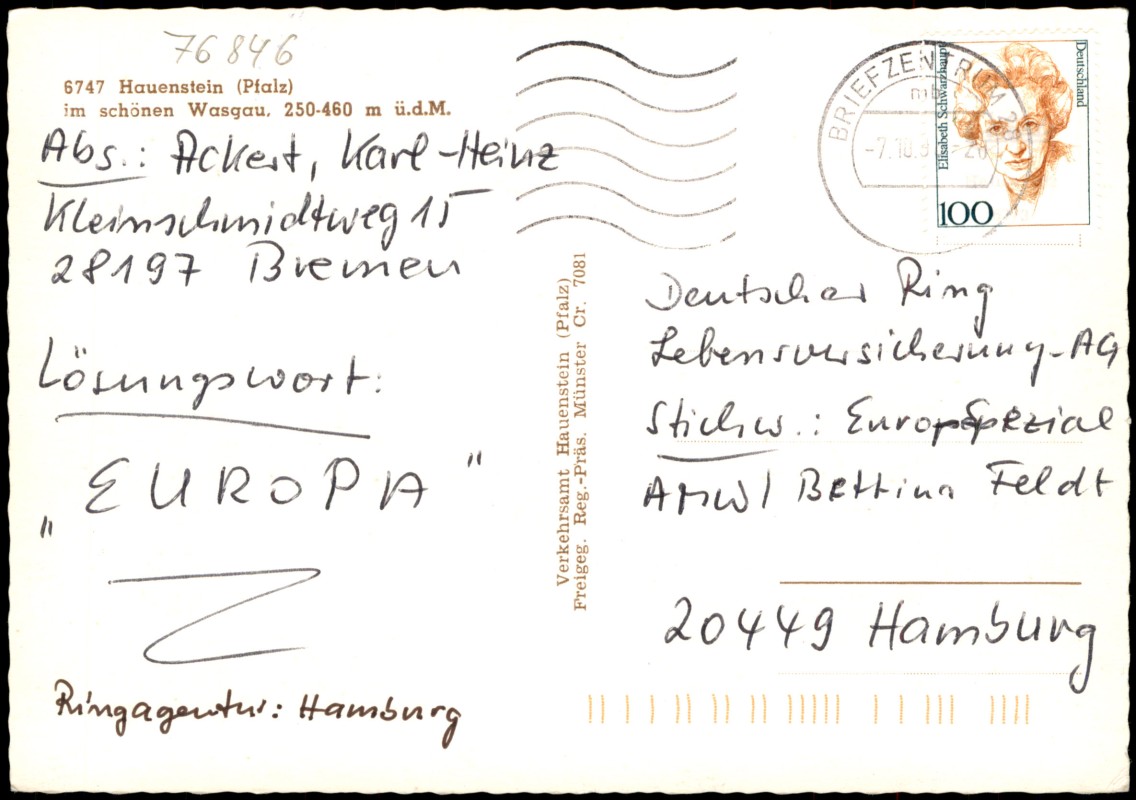 76846
6747 Hauenstein (Pfalz)
im schönen Wasgau, 250-460 m ü.d.M.
Abs.: Ackert, Karl-Heinz
Kleinschmidtweg 15
28197 Bremen
Lösungswort:
„EUROPA"
Ringagentur: Hamburg
Verkehrsamt Hauenstein (Pfalz)
Freigeg. Reg.-Präs. Münster Cr. 7081
BRIEFZENTRUM 28
mb
-7.10.
Elisabeth Schwarzhaupt
Deutschland
100
Deutscher Ring
Lebensversicherung-AG
Stichw.: EuropSpezial
AMW/ Bettina Feldt
20449 Hamburg